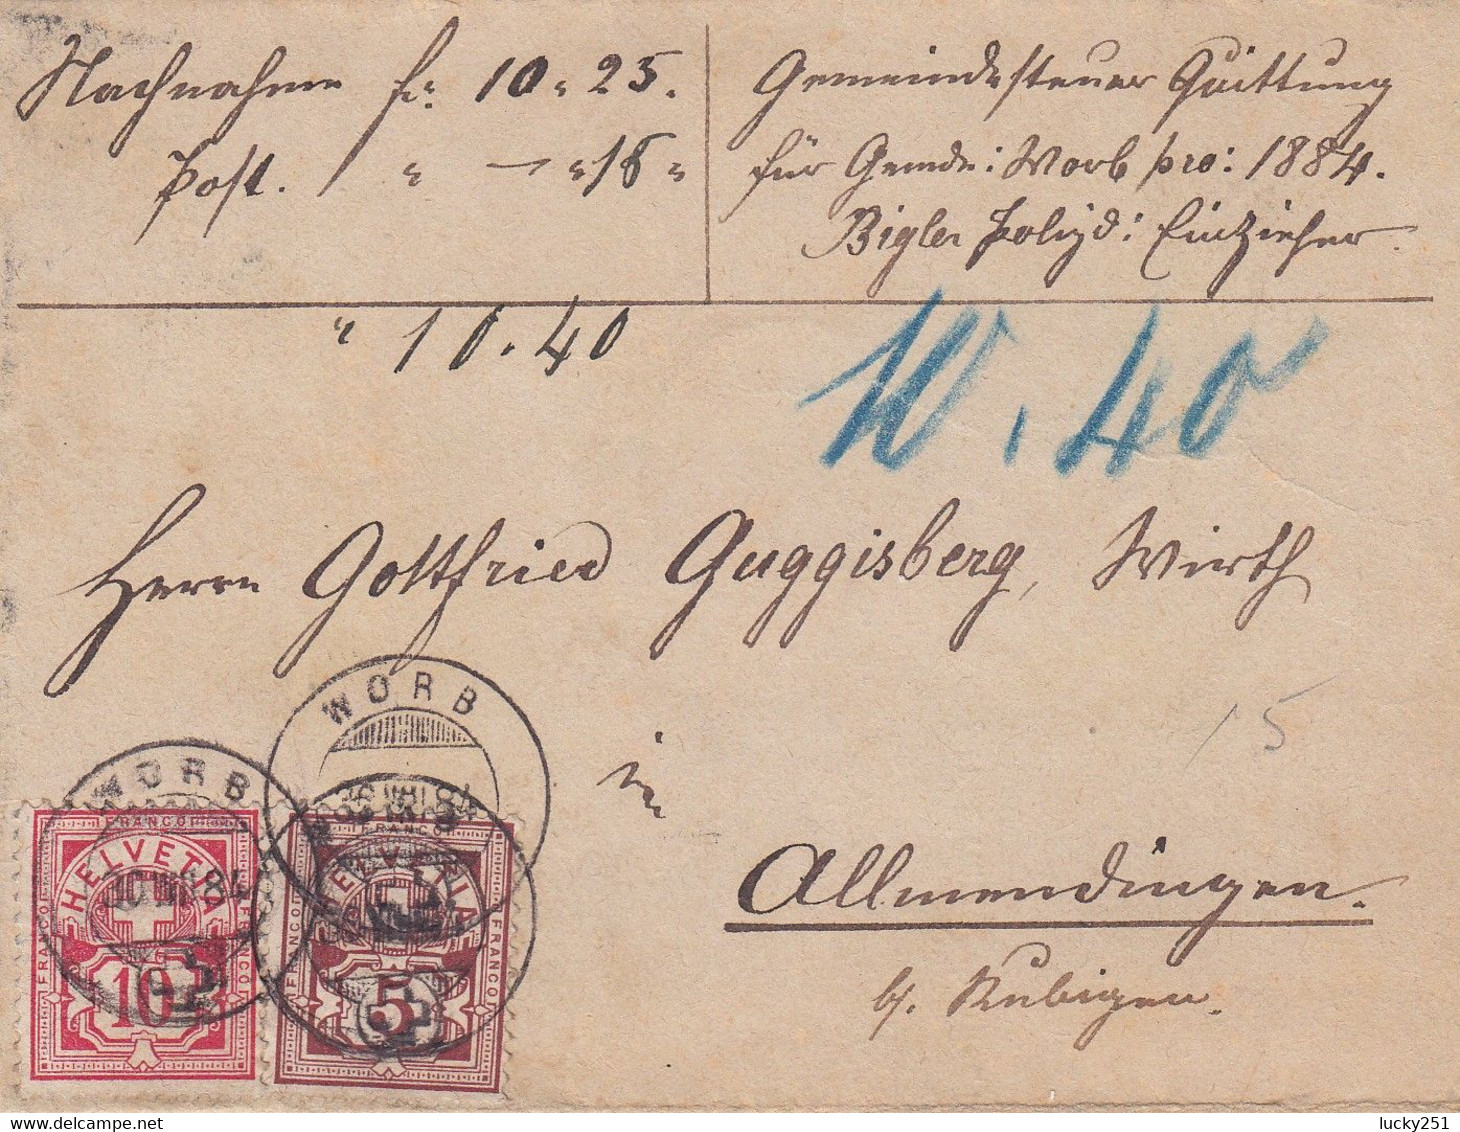 Nachnahme fr. 10.25.
Post. " — " 15 "
" 10.40
Gemeindesteuer Quittung
für Gemde: Worb pro: 1884.
Bigler Polizd: Einzieher.
10.40
Herrn Gottfried Guggisberg, Wirth
in
Allmendingen.
b/. Rubigen.
15
WORB
WORB
FRANCO
HELVETIA
FRANCO
FRANCO
10
FRANCO
HELVETIA
FRANCO
FRANCO
5
lucky251